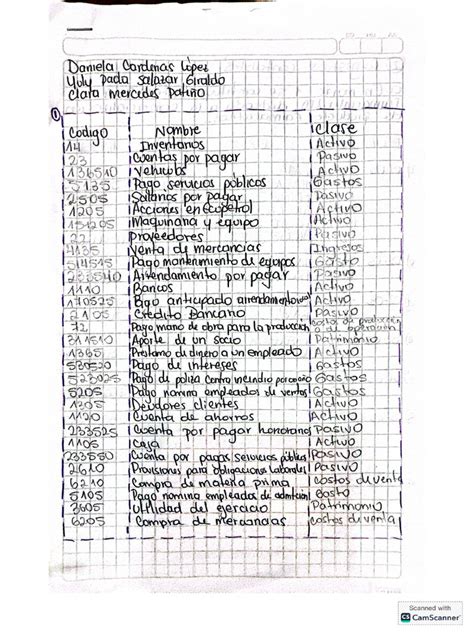 Daniela Cardenas López
Yuly paola Salazar Giraldo
Clara Mercedes Patiño
1
Codigo Nombre Clase
14 Inventarios Activo
23 Cuentas por pagar Pasivo
Vehiculos Activo
5135 Pago servicios públicos Gastos
2505 Salarios por pagar Pasivo
1205 Acciones en Ecopetrol Activo
Maquinaria y equipo Activo
22 Proveedores Pasivo
4135 Venta de mercancias Ingresos
514515 Pago mantenimiento de equipos Gasto
233540 Arrendamiento por pagar Pasivo
1110 Bancos Activo
170525 Pago anticipado arrendamiento Activo
2105 Credito Bancario Pasivo
72 Pago mano de obra para la producción costos de producción o de operación
311510 Aporte de un socio Patrimonio
1365 Prestamo de dinero a un empleado Activo
530520 Pago de intereses Gastos
523025 Pago de poliza contra incendio Gastos
5205 Pago nomina empleados de ventas Gastos
1305 Deudores clientes Activo
1120 Cuenta de ahorros Activo
233525 Cuenta por pagar honorarios Pasivo
1105 Caja Activo
233550 Cuenta por pagar servicios públicos Pasivo
2610 Provisiones para obligaciones laborales Pasivo
6210 Compra de materia prima costos de venta
5105 Pago nomina empleados de admision Gasto
3605 Utilidad del ejercicio Patrimonio
6205 Compra de mercancias costos de venta
Scanned with
CS CamScanner